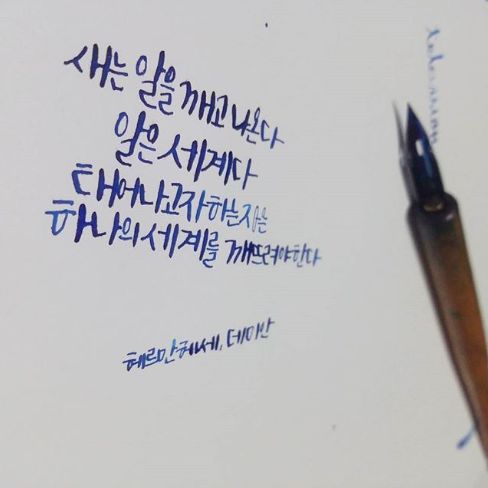 새는 알을 깨고 나온다
알은 세계다
태어나고자하는자는
하나의 세계를 깨뜨려야한다
헤르만헤세, 데미안